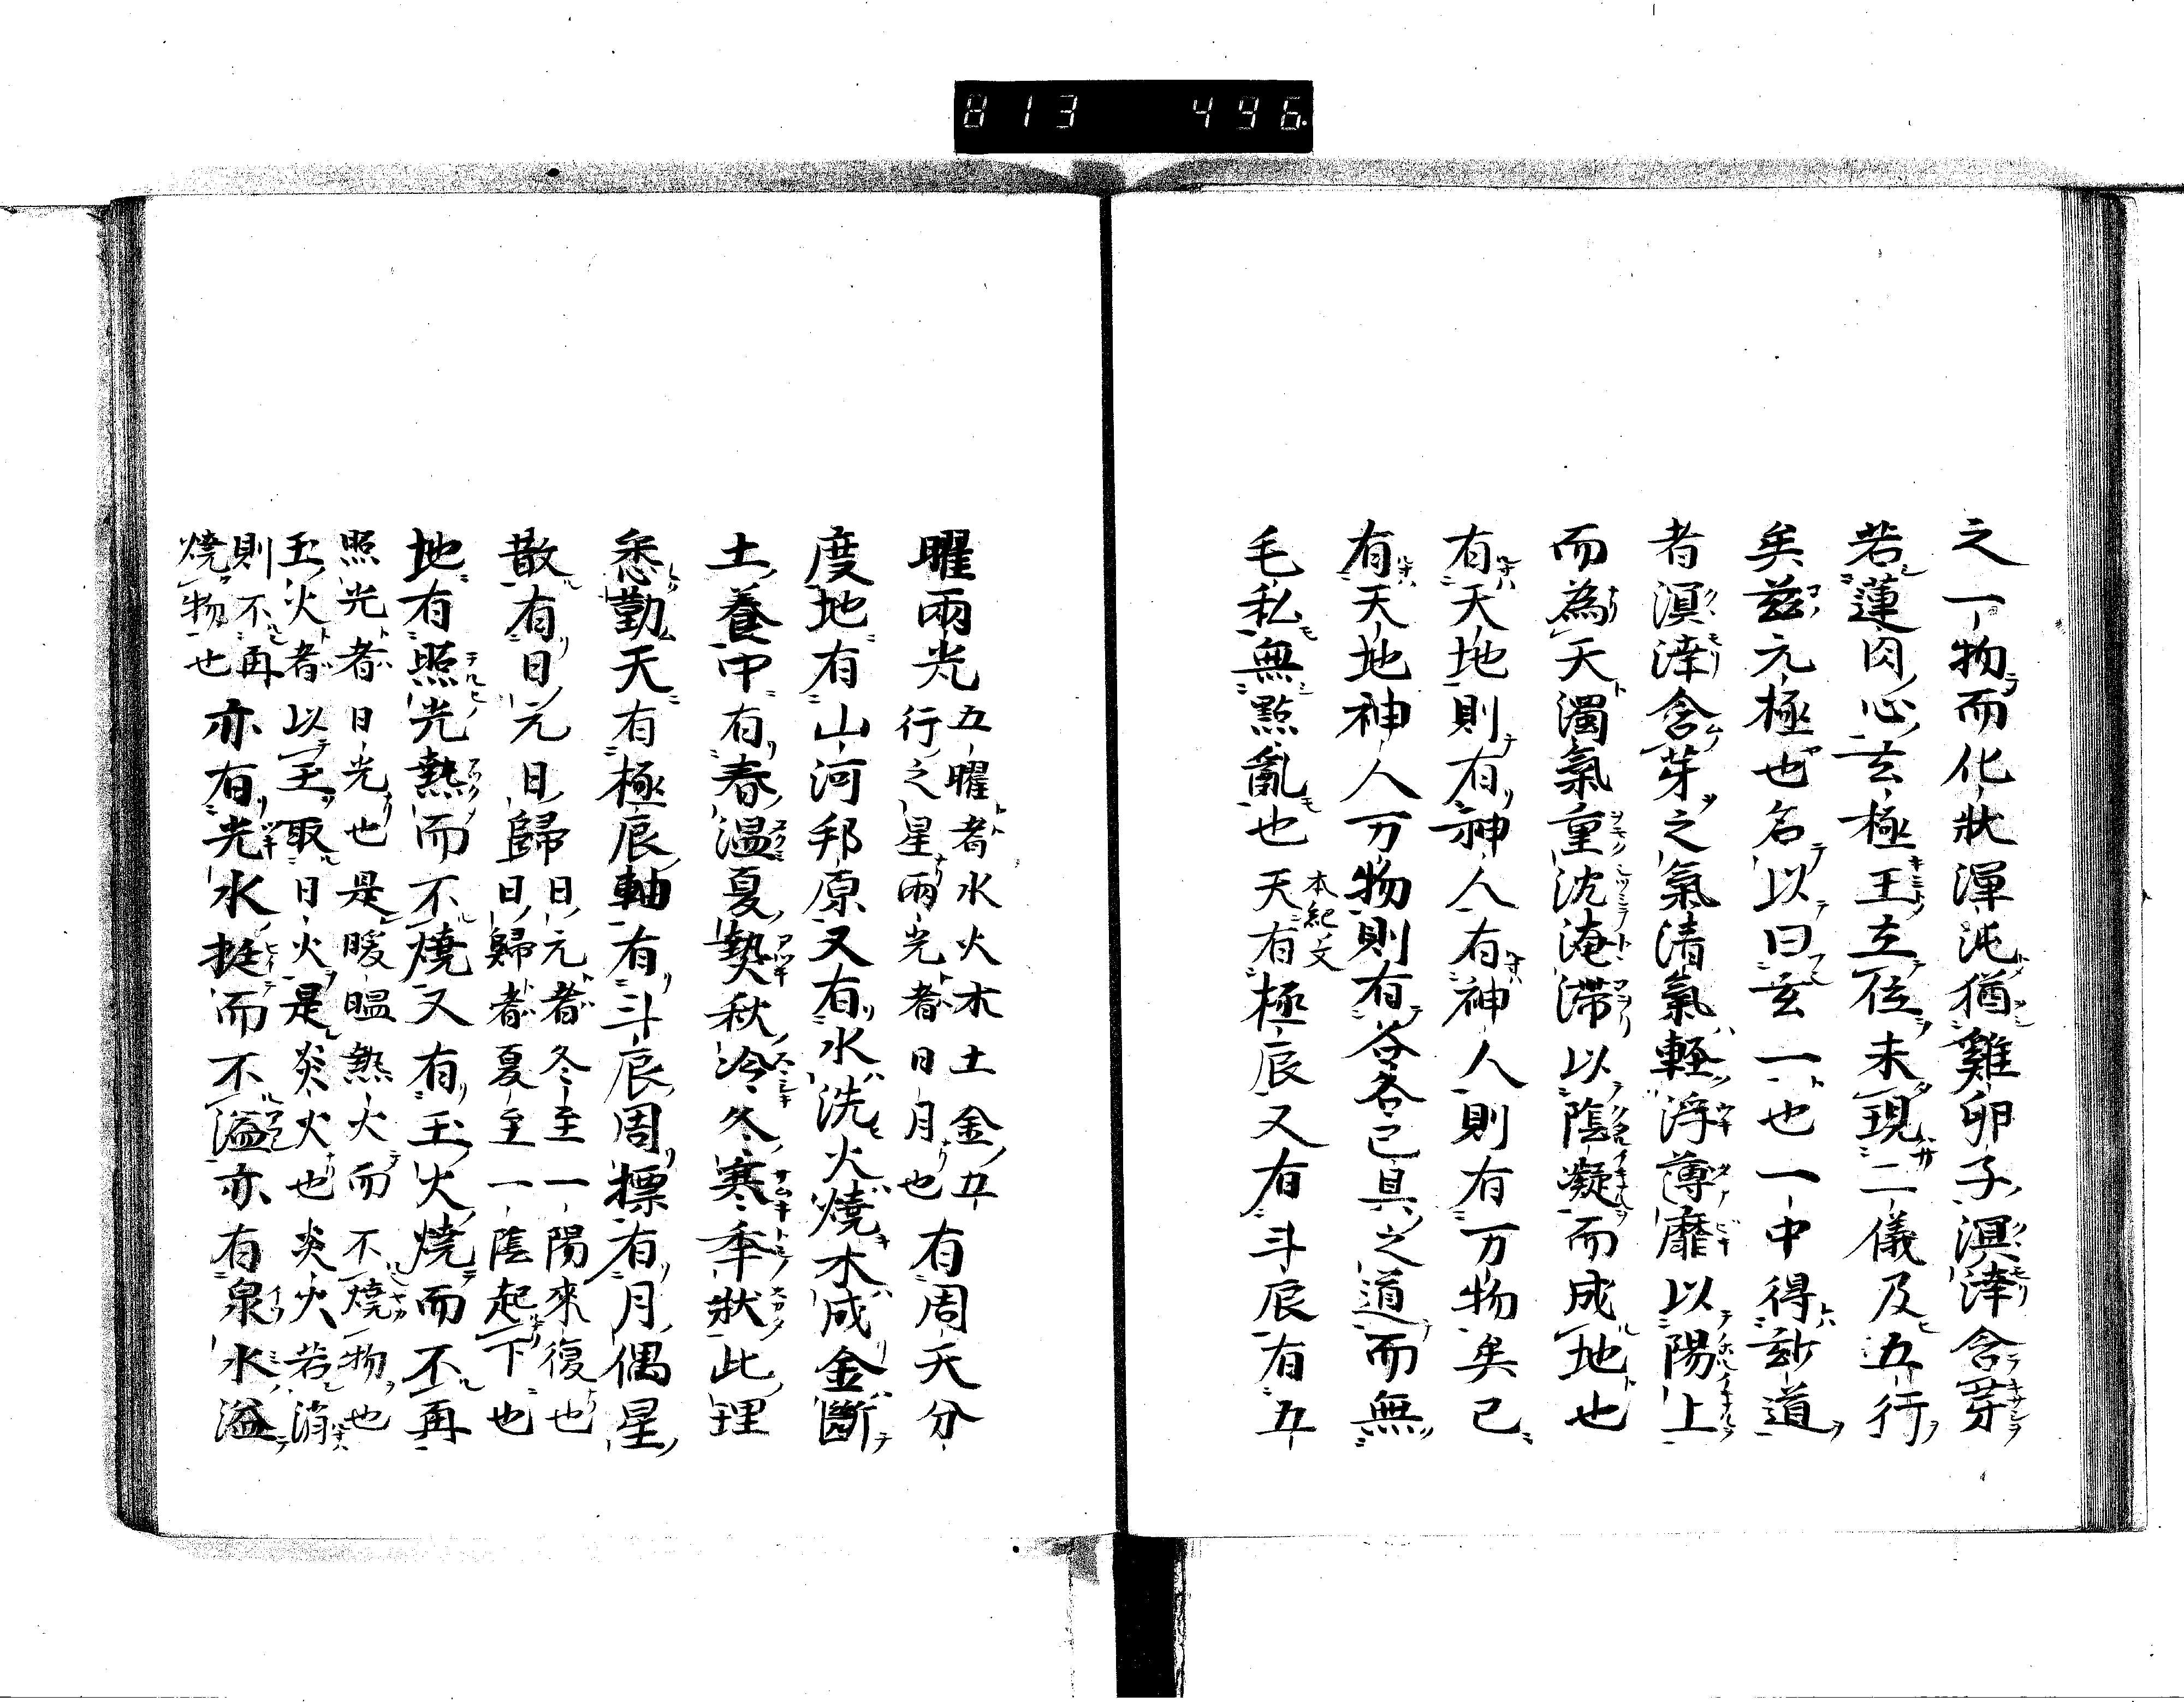 813 496.
之一物而化狀渾沌猶雞卵子溟涬含芽
若蓮肉心玄極王立位未現二儀及五行
矣茲元極也名以曰玄一也一中得玅道
者溟涬含芽之氣清氣輕浮薄靡以陽上
而為天濁氣重沈淹滞以陰凝而成地也
有天地則有神人有神人則有万物矣已
有天地神人万物則有各各已具之道而無
毛私無點亂也 本紀文 天有極辰又有斗辰有五
曜兩光 五曜者水火木土金五
行之星兩光者日月也 有周天分
度地有山河邦原又有水洗火燒木成金斷
土養中有春温夏𤍠秋冷冬寒季狀此理
悉勤天有極辰軸有斗辰周摽有月偶星
散有日元日歸 日元者冬至一陽來復也
日歸者夏至一陰起下也
地有照光熱而不燒又有玉火燒而不再
照光者日光也是暖煴熱火而不燒物也
玉火者以玉取日火是炎火也炎火若消
則不再
燒物也 亦有光水挺而不溢亦有泉水溢